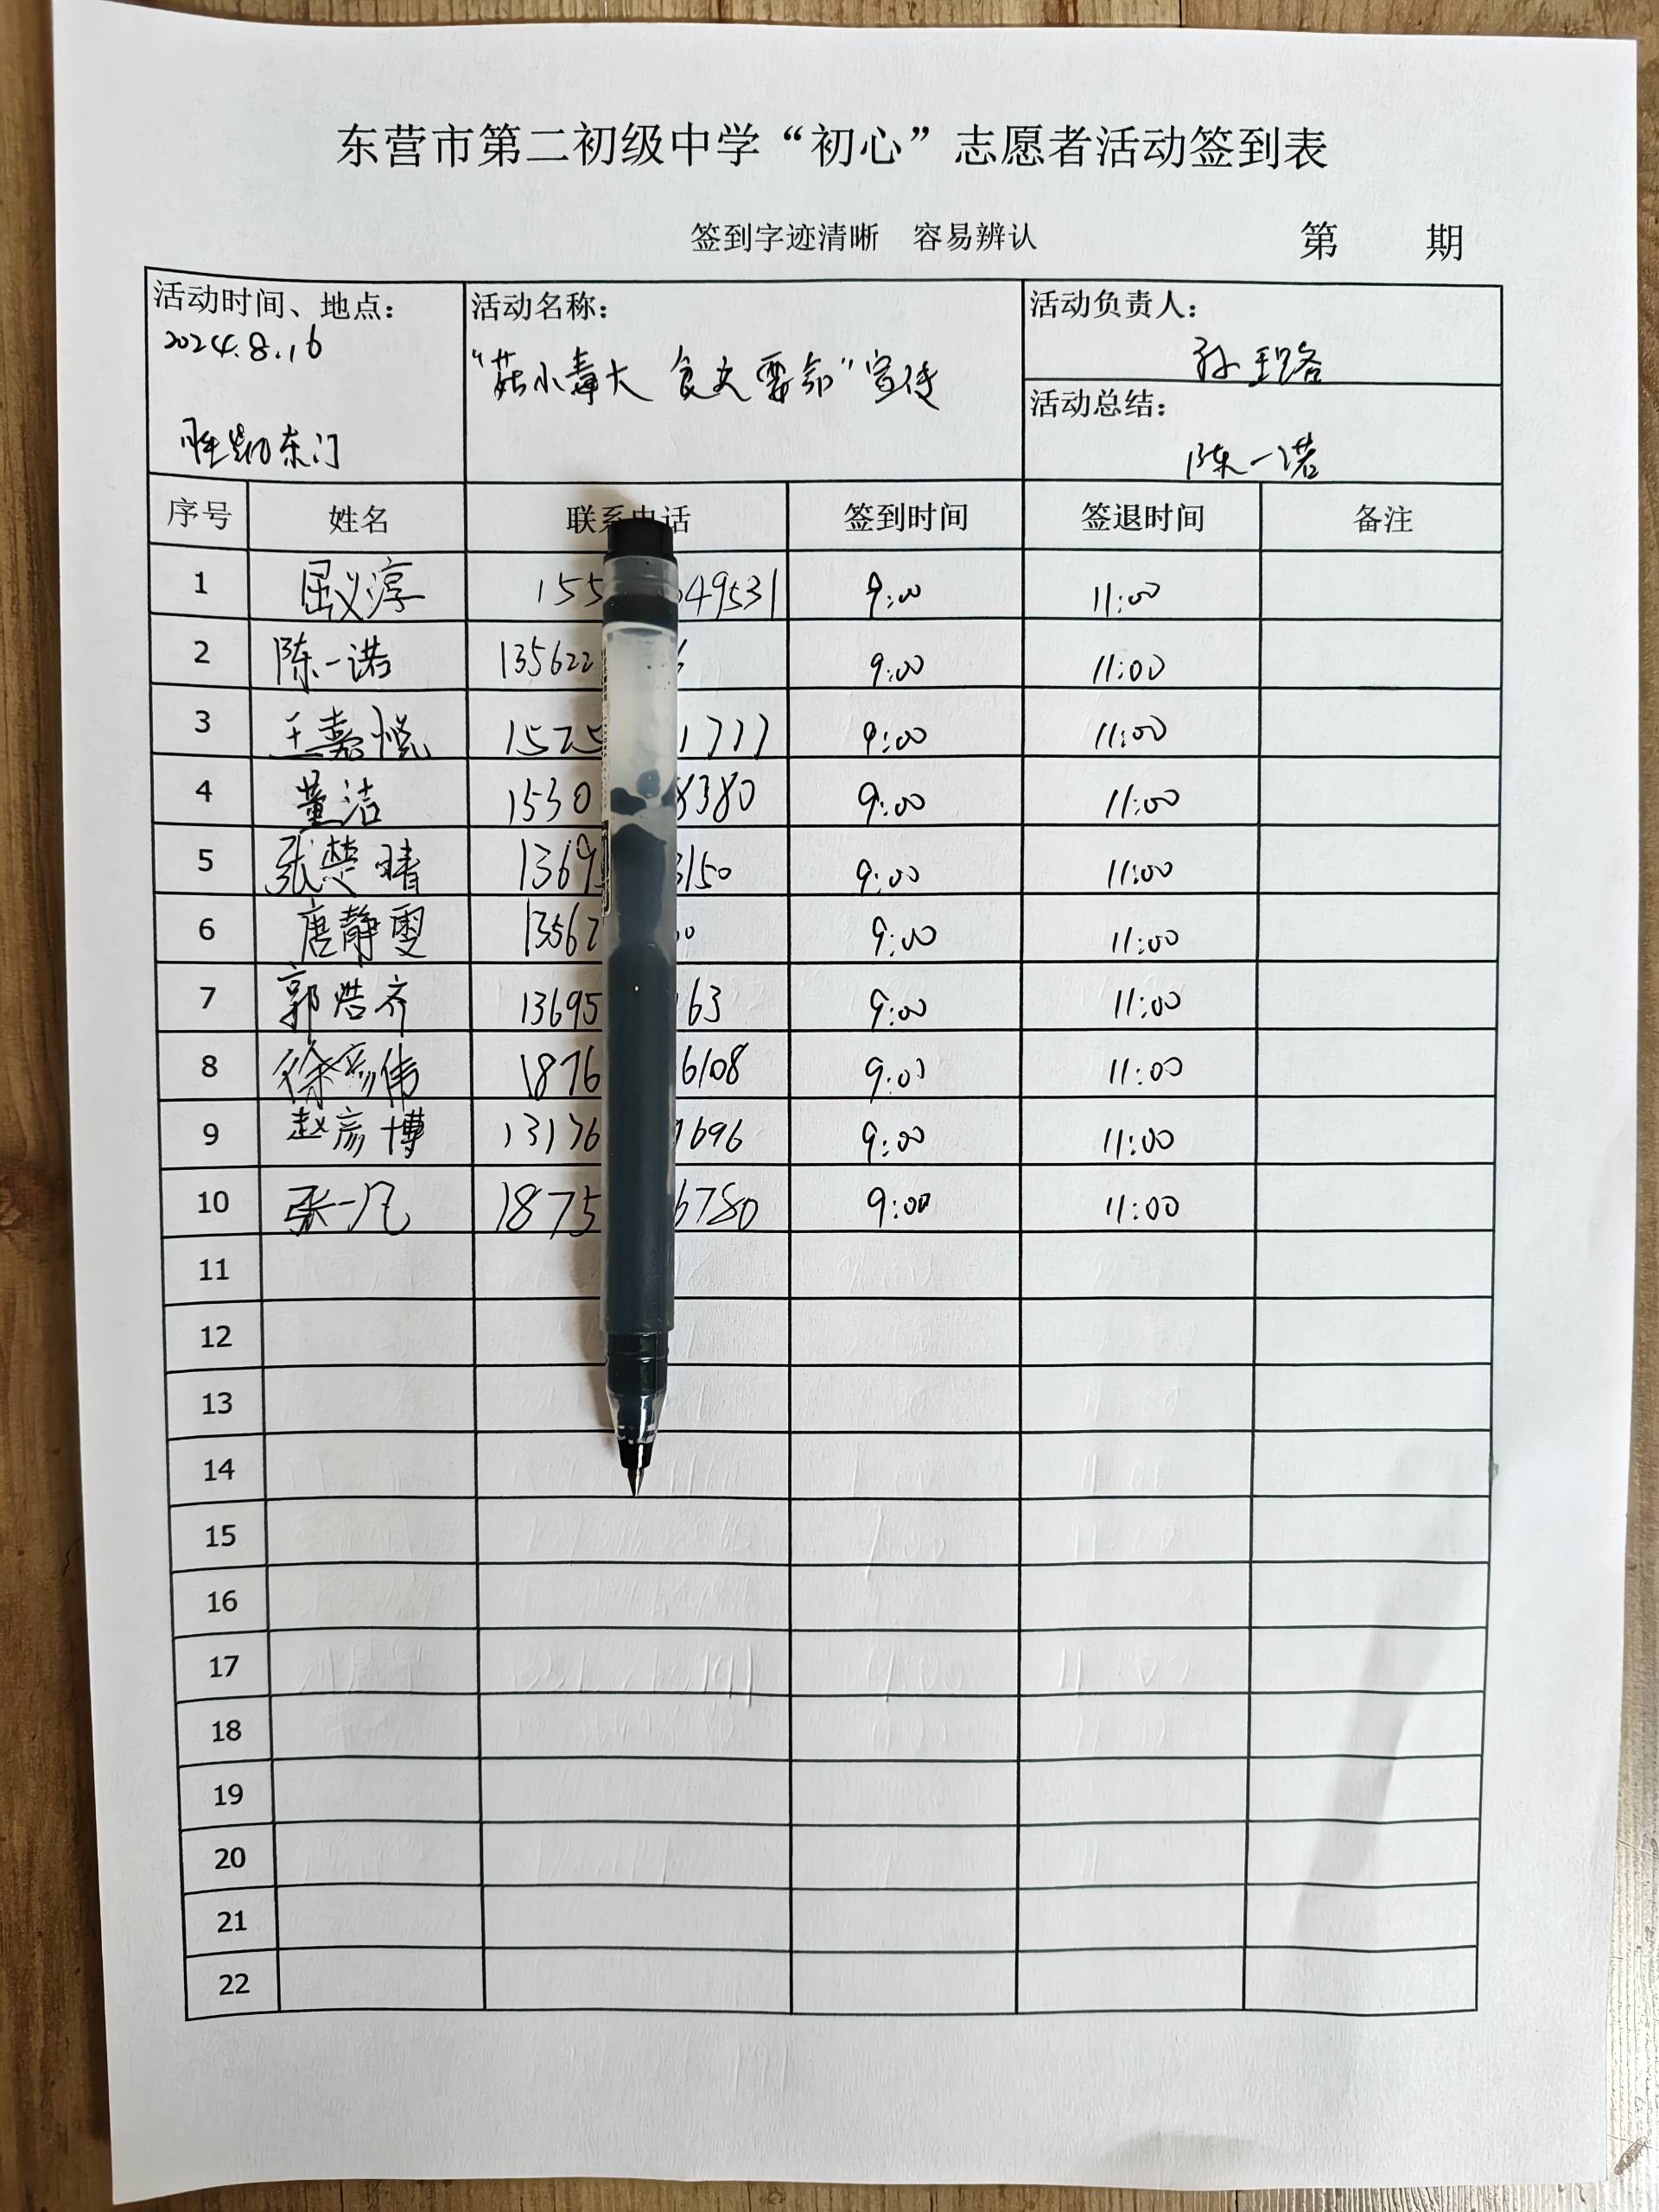 东营市第二初级中学“初心”志愿者活动签到表
签到字迹清晰 容易辨认 第 期
活动时间、地点： 活动名称： 活动负责人：
2024.8.16
“菇小毒大 食之要命”宣传
活动总结：
东门
陈一诺
序号 姓名 联系电话 签到时间 签退时间 备注
1 屈义淳 155 49531 9:00 11:00
2 陈一诺 135622 9:00 11:00
3 王嘉悦 1525 1777 9:00 11:00
4 董洁 1530 8380 9:00 11:00
5 张楚晴 1369 3150 9:00 11:00
6 唐静雯 13562 0 9:00 11:00
7 郭浩齐 13695 163 9:00 11:00
8 徐彦伟 1876 6108 9:00 11:00
9 赵彦博 13176 1696 9:00 11:00
10 张一凡 1875 6780 9:00 11:00
11
12
13
14
15
16
17
18
19
20
21
22